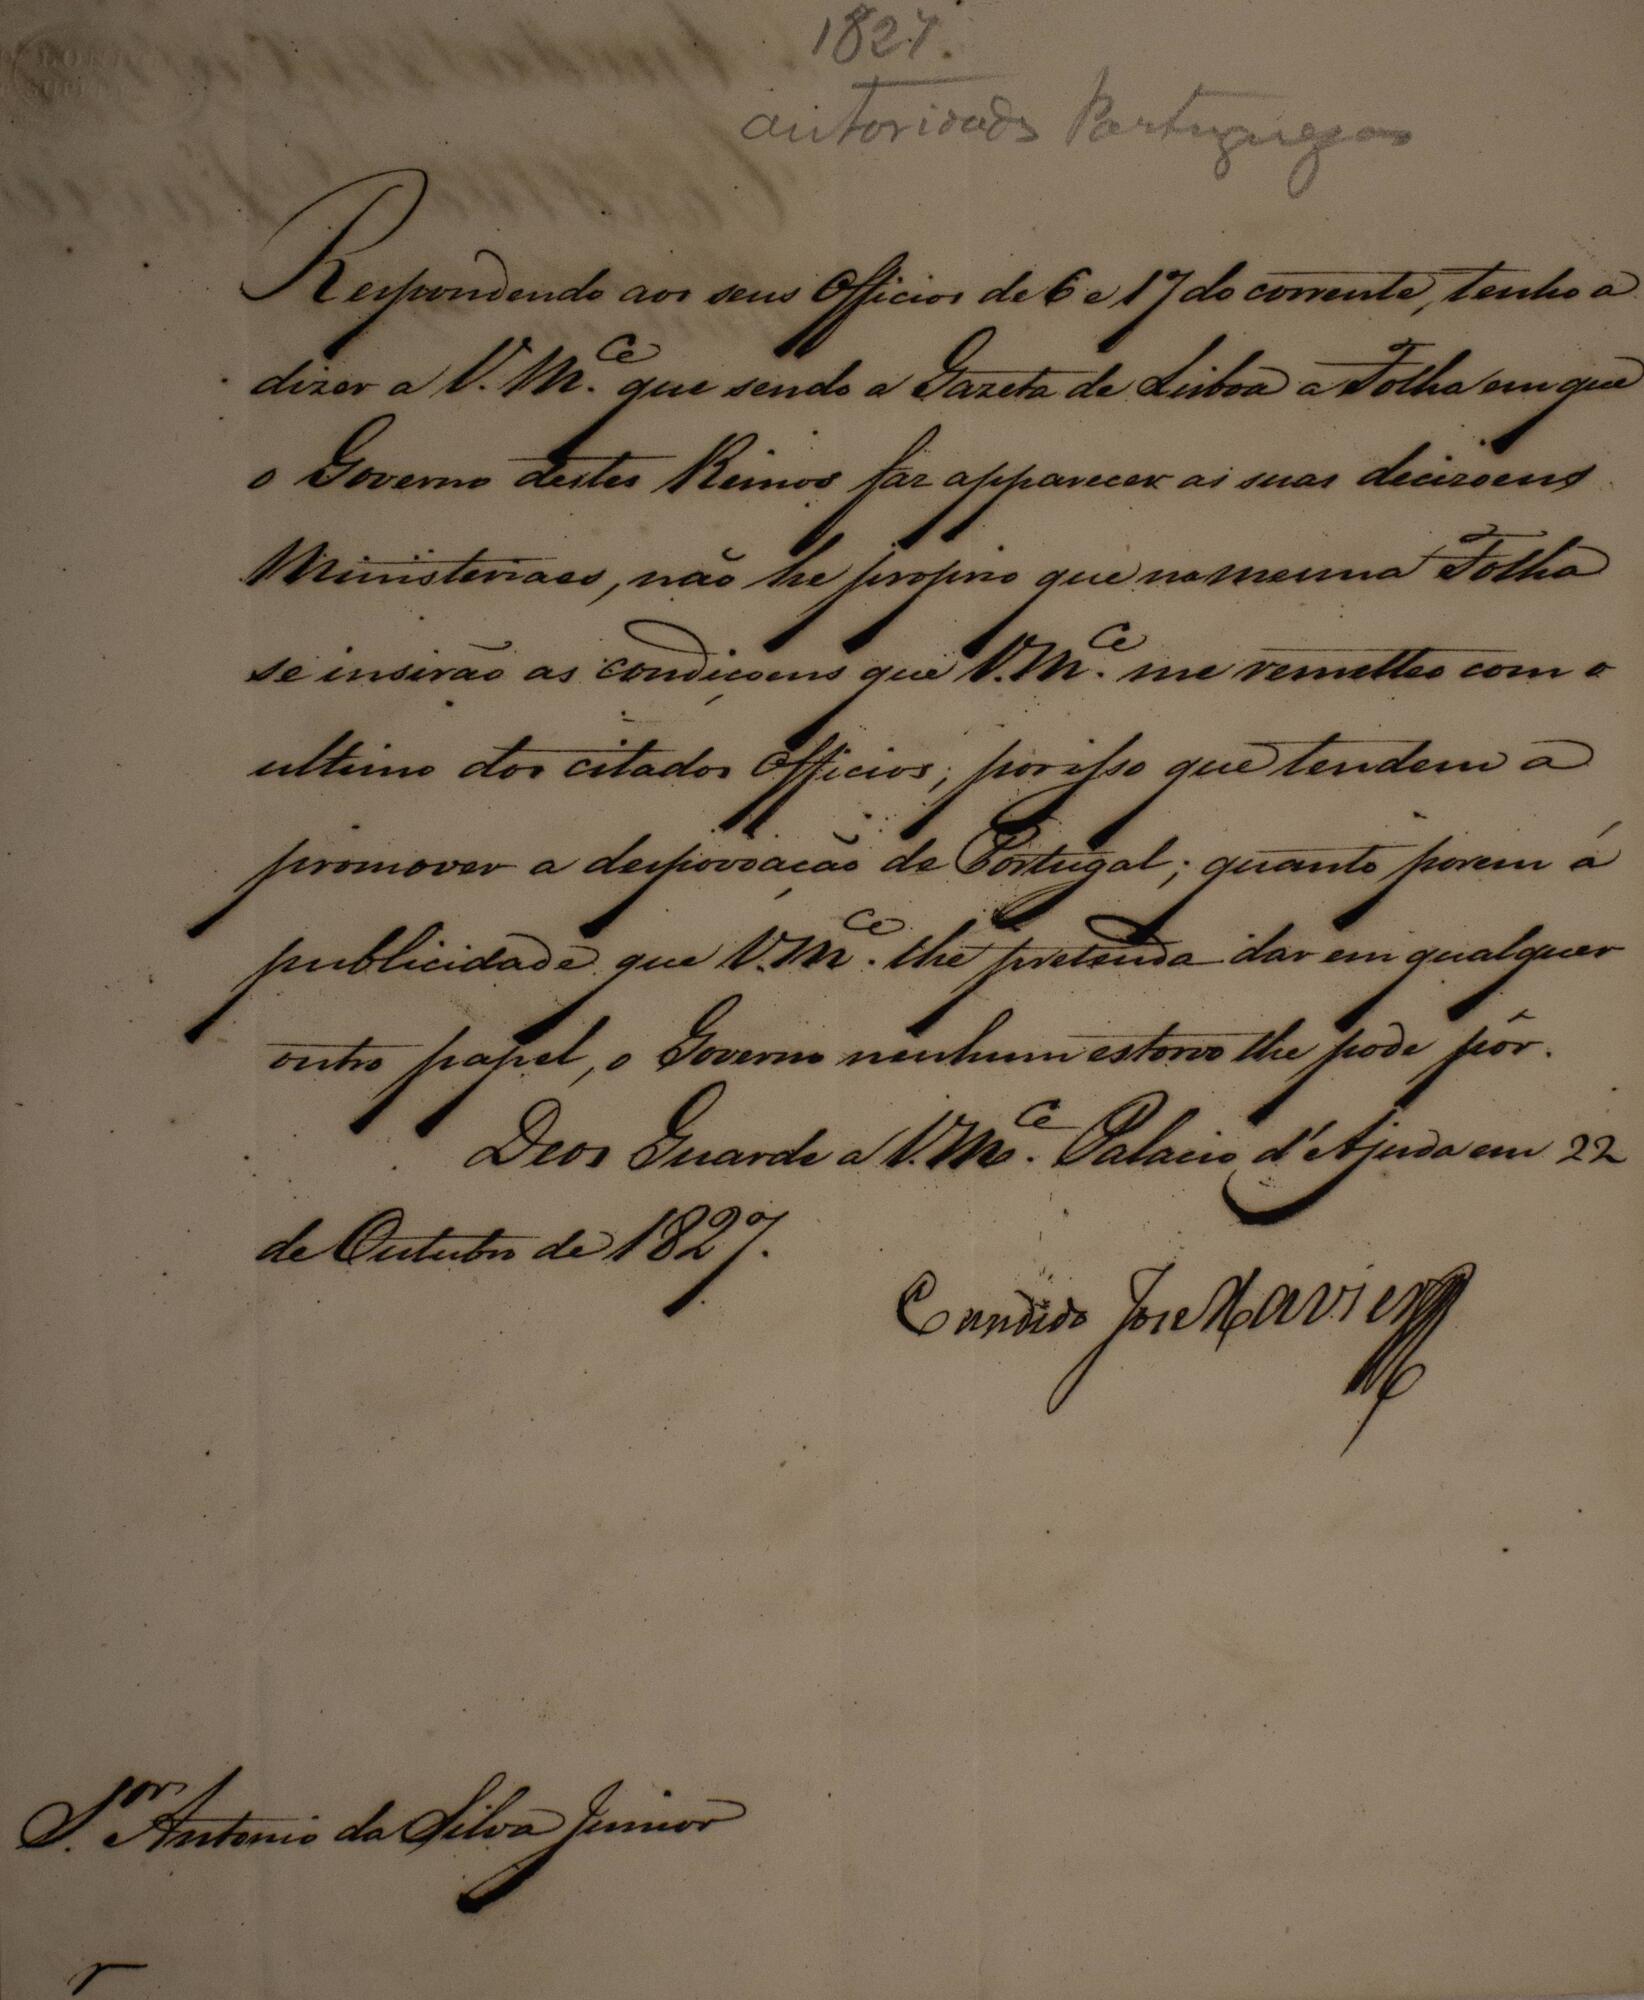 1827.
autoridades Portuguezas
Respondendo aos seus Officios de 6 e 17 do corrente, tenho a
dizer a V. M.ce que sendo a Gazeta de Lisboa a Folha em que
o Governo destes Reinos faz apparecer as suas decisoens
Ministeriaes, não he proprio que na mesma Folha
se insirão as condiçoens que V. M.ce me remetteo com o
ultimo dos citados Officios, por isso que tendem a
promover a despovoação de Portugal; quanto porem á
publicidade que V. M.ce lhe pretenda dar em qualquer
outro papel, o Governo nenhum estorvo lhe pode pôr.
Deos Guarde a V. M.ce Palacio d'Ajuda em 22
de Outubro de 1827.
Candido José Xavier
S.or Antonio da Silva Junior